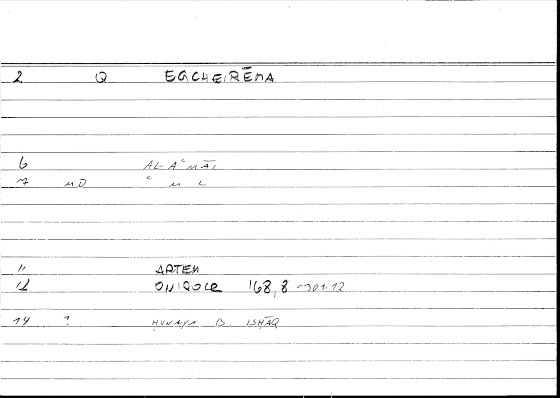 2 Q EGCHEIRĒMA
6 AL-AʿMĀL
7 MD ʿ M L
11 ARTEM
12 ONIROCR 168,8-301.12
14 ? ḤUNAYN B. ISḤĀQ